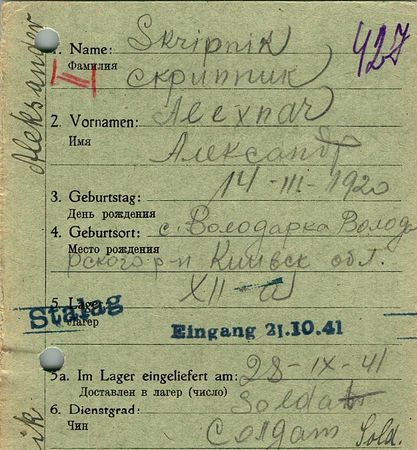 Aleksander
1. Name: Skripnik
Фамилия Скрипник
427
III
2. Vornamen:
Имя Александр
3. Geburtstag: 14-III-1920
День рождения
4. Geburtsort: с. Володарка Волода
Место рождения рского р-н Киивск обл.
5. Lager: XII-a
Stalag
Лагерь
Eingang 21.10.41
5a. Im Lager eingeliefert am: 28-IX-41
Доставлен в лагерь (число)
6. Dienstgrad: Soldat
Чин Солдат Sold.
ik